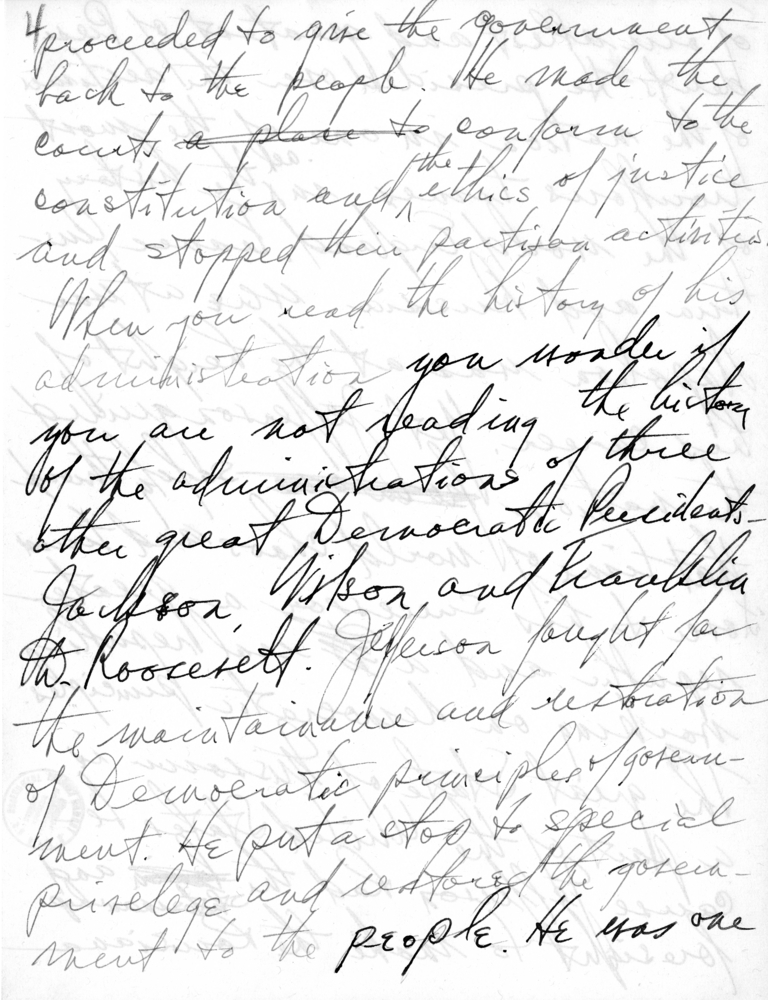 4
proceeded to give the government
back to the people. He made the
courts a place to conform to the
constitution and the ethics of justice
and stopped their partison activities.
When you read the history of his
administration you wonder if
you are not reading the history
of the administrations of three
other great Democratic Presidents-
Jackson, Wilson and Franklin
D. Roosevelt. Jefferson fought for
the maintainance and restoration
of Democratic principles of govern-
ment. He put a stop to special
privelege and restored the govern-
ment to the people. He was one